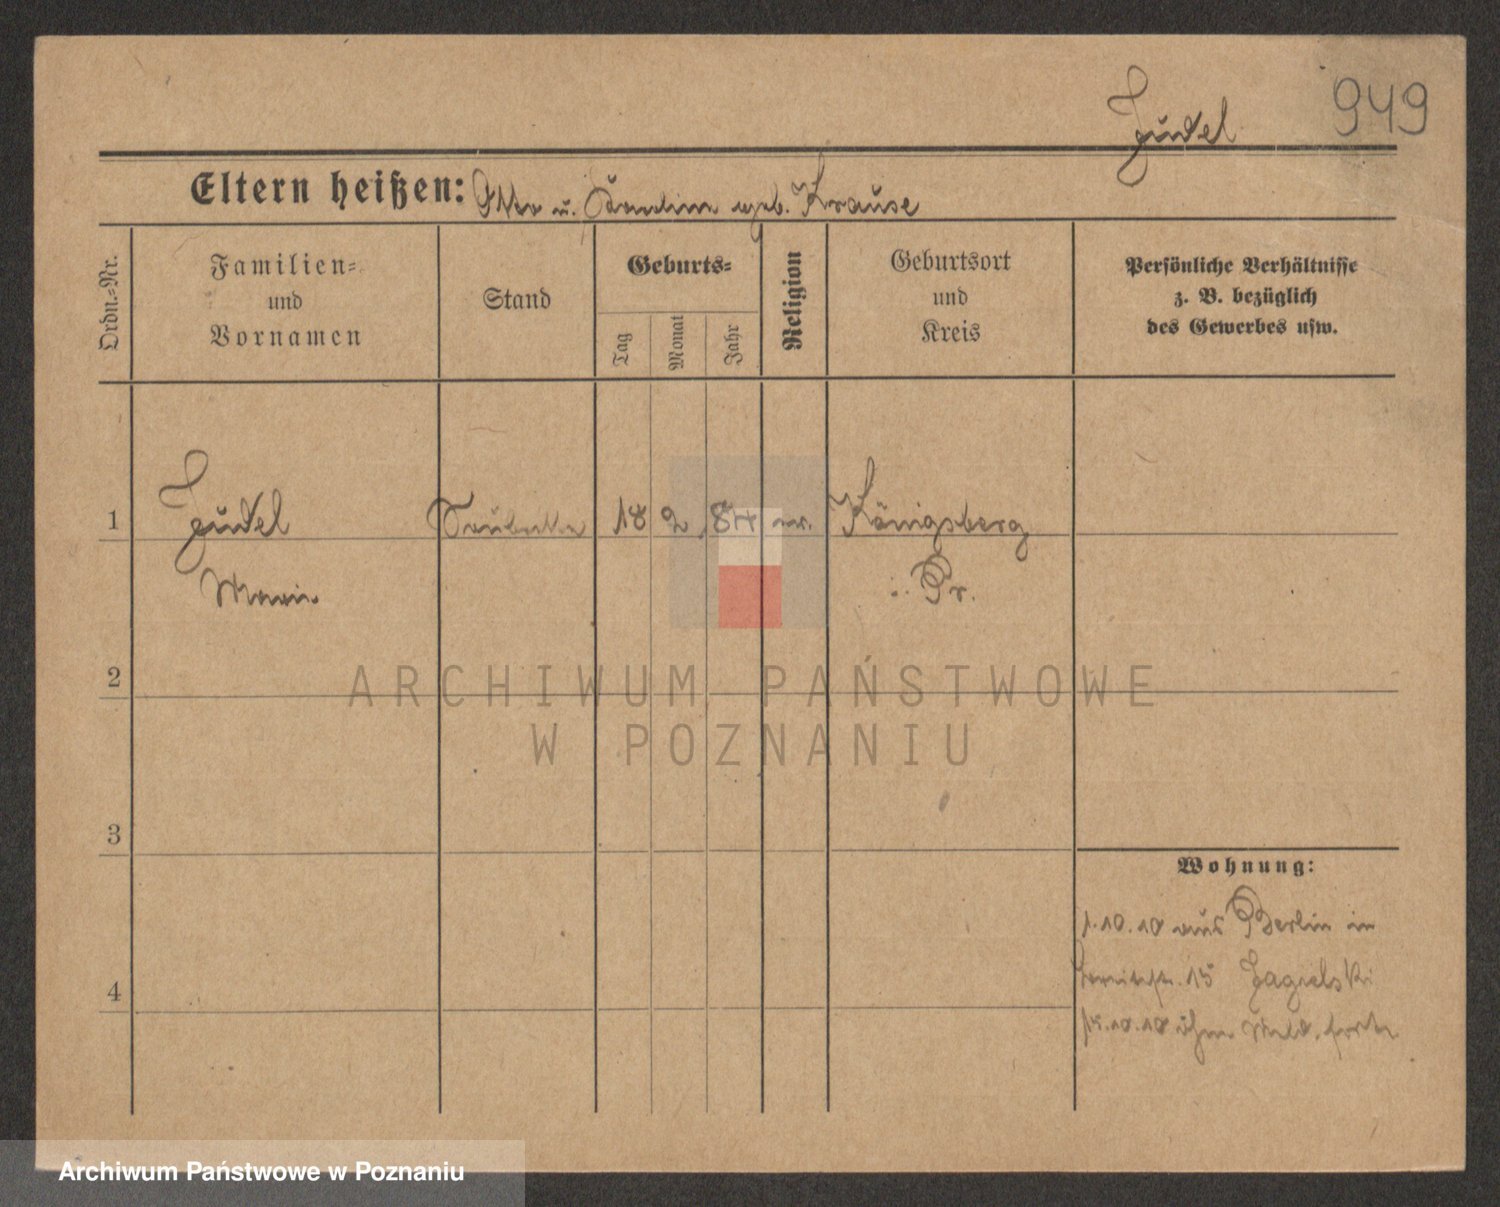 949
Judel
Eltern heißen: Otto u. geb. Krause
Ordn.-Nr.
Familien-
und
Vornamen
Stand
Geburts-
Tag
Monat
Jahr
Religion
Geburtsort
und
Kreis
Persönliche Verhältnisse
z. B. bezüglich
des Gewerbes usw.
1 Judel 18 2 84 ev. Königsberg
Marie i. Pr.
2
3
4
Wohnung:
1.10.10 aus Berlin in
15 Jagielski
15.10.10 ohne Meld. fort
ARCHIWUM PAŃSTWOWE
W POZNANIU
Archiwum Państwowe w Poznaniu